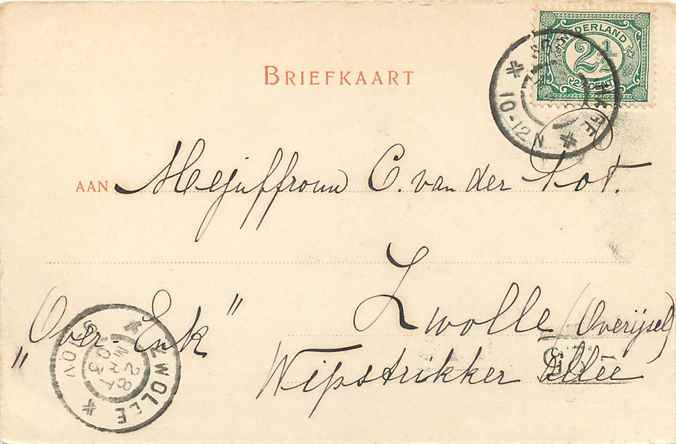 BRIEFKAART
NEDERLAND
2½
10-12 N
AAN Mejuffrouw C. van der
Zwolle (Overijsel)
„Over Enk"
Wipstrikker Allée
ZWOLLE
28 MRT 03